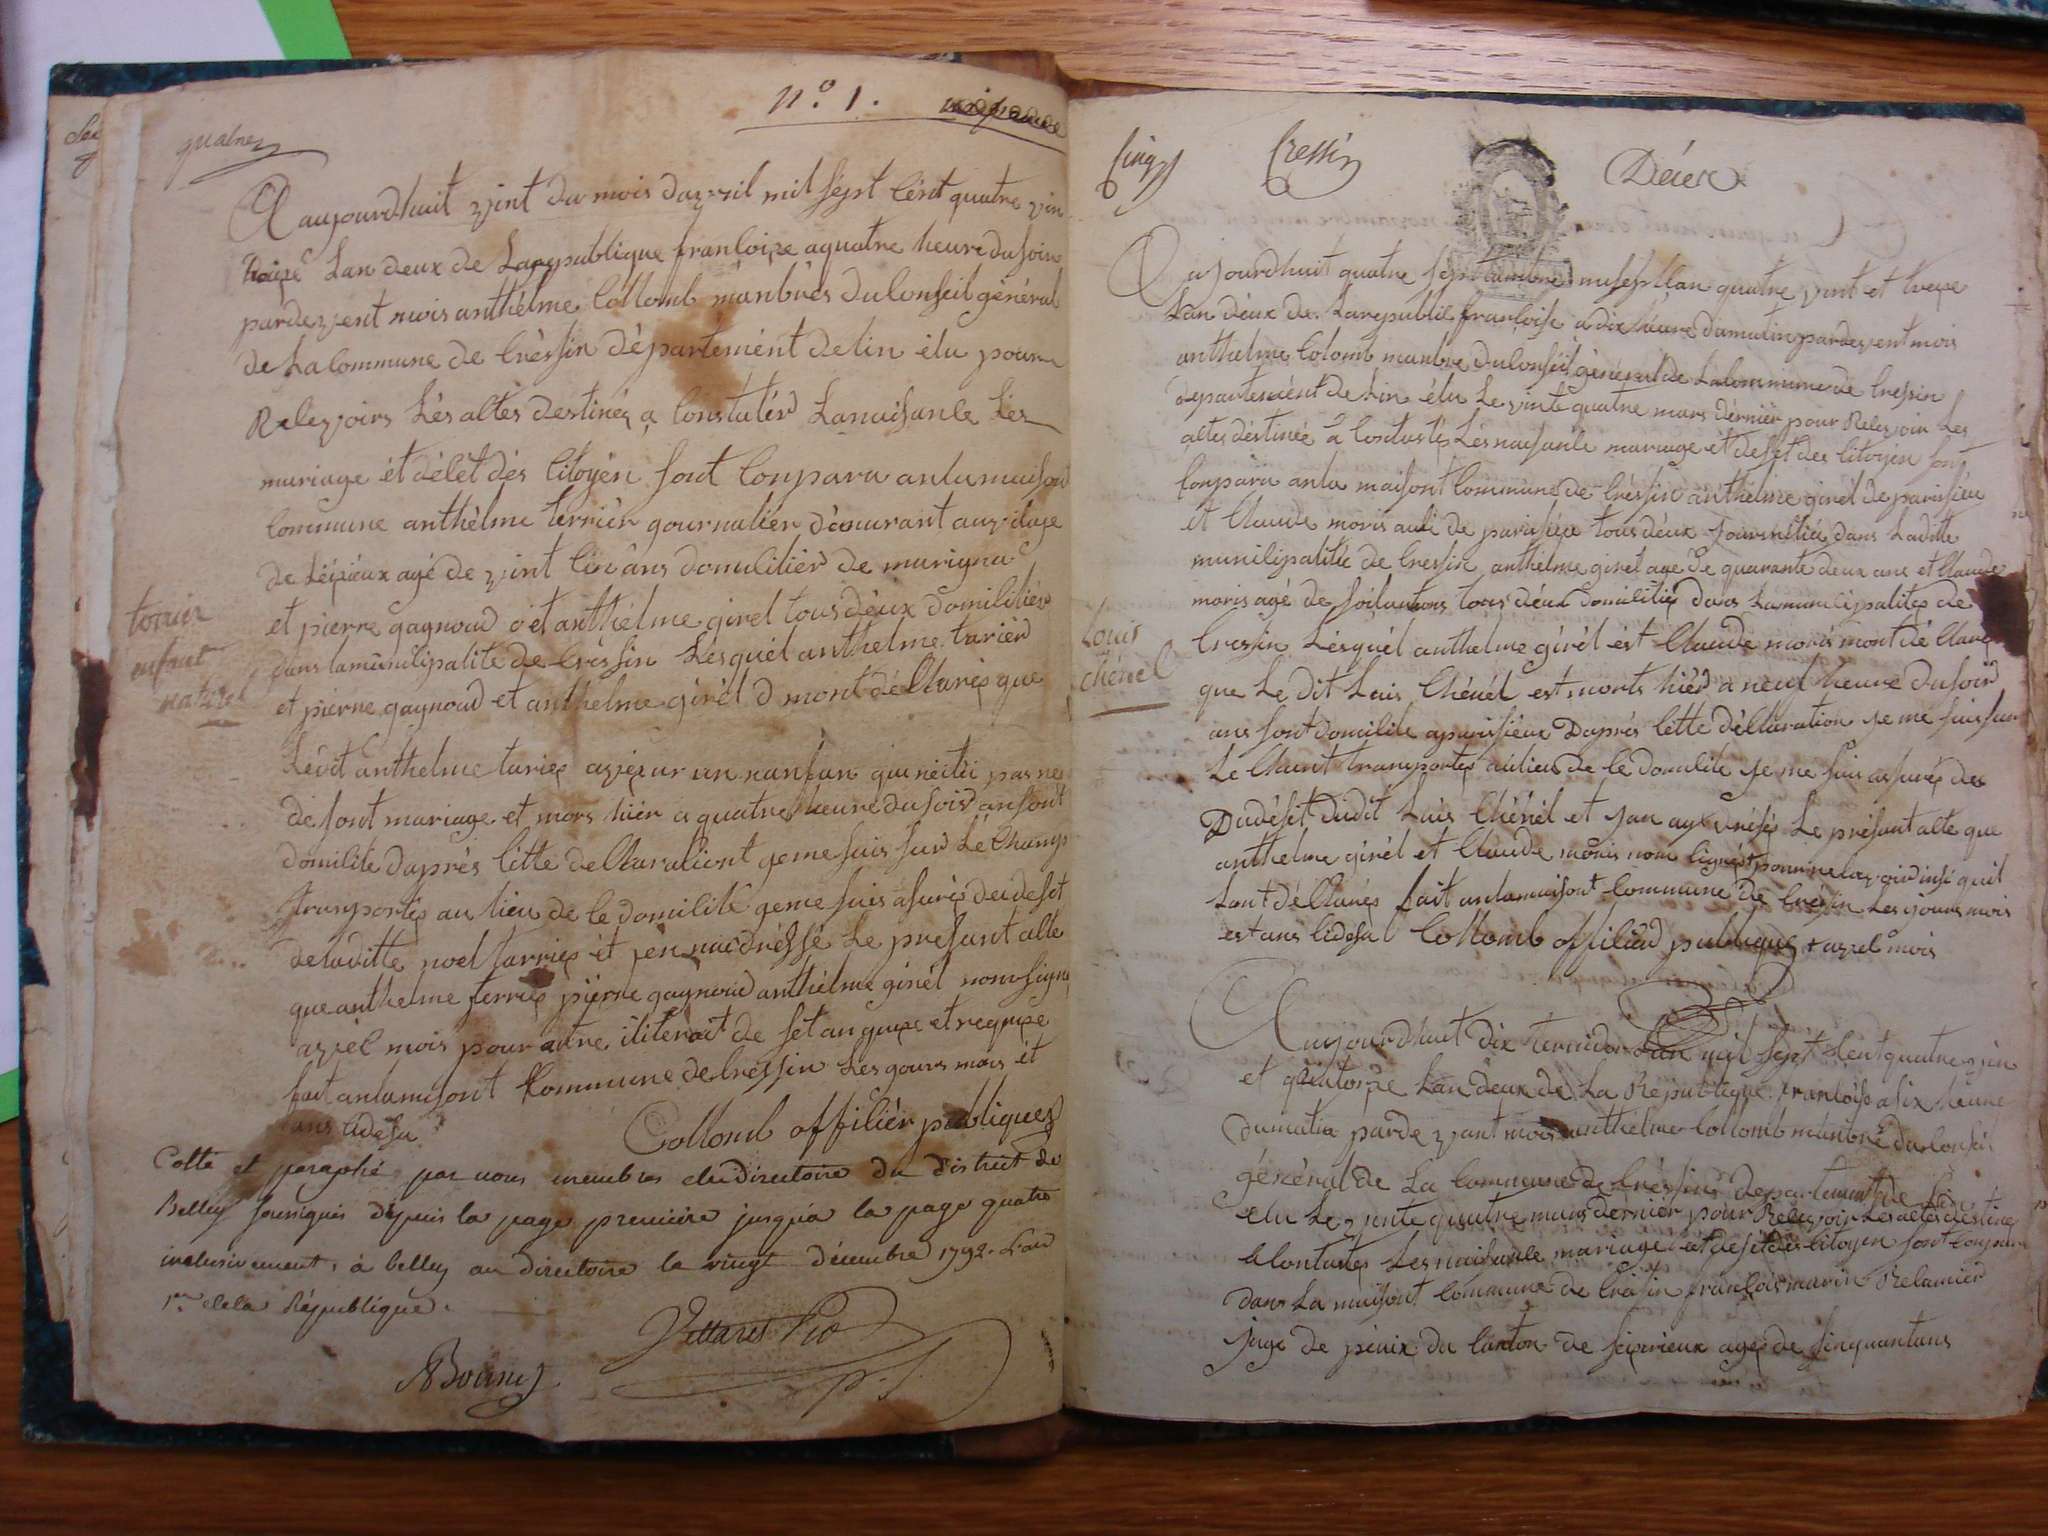 quatre
n.° 1.
aujourdhuit vint du mois davril mil sept Cent quatre vin
treize Lan deux de Larepublique francoise aquatre heure du soire
pardevent mois anthelme Collomb manbres du Conseil général
de La Commune de Cressin département delin élu pour
Relevoirs Les actes destinéz a Constatér Lanaisance Les
mariage ét décét dés Citoyén sont Conparu anlamaison
Commune anthélme terrier gournalier démurant au vilage
de agé de vint Cin ans domicilier de
et pierre gagnoud ét anthelme girel tous déux domicilier
dans lamunicipalité de Créssin Lesquel anthelme tariér
et pierre gagnoud et anthelme girél mont décllarés que
terrier
enfant
natur
Lédit anthelme tariez un nanfan qui néttéi pas né
dé sont mariage et mors hiér a quatre heure du soir ansont
domicile daprés Cétte décllarationt geme suis sur Lé Champ
transportéz au lieu de Ce domicile geme suis asurés du deset
deladitte noel tarriez ét jen naidréssé Le présant alte
que anthelme terriez piérre gagnoud anthélme girél nom signé
avéc mois pour
fait anlamisont Commune de Créssin Les gours mois ét
ans Cidesu
Collomb offiliér publiquez
Cotté et paraphé par nous membres du directoire du district de
Belley soussignés depuis la page premiere jusqu'à la page quatre
inclusivement, à belley au directoire le vingt décembre 1792. L'an
1er de la République.
Cinq
Cressin
Décex
aujourdhuit quatre septambre milsept Can quatre vint et treze
Lan déux de Larepublic françoise a dix héure dumatin pardevent mois
anthelme Colomb manbre du Conseil général de La Commune de Cressin
département de Lin élu Le vint quatre mars dérniér pour Relevoir Les
altes déstinéé a Constatés Lés naisanse mariage et deset des Citoyén sont
Conparu anla maisont Commune de Créssin anthélme girél de parissieu
et Claude moris ausi de parissieu tous déux dans Laditte
municipalitée de Cressin anthelme girel agé de quarante deux ans et Claude
moris agé de tous déux domicilié dans Lamunicipalités de
Cressin Lésquél anthelme girél ést Claude moris mont dé Clarés
Louis
Chénél
que Le dit Luis Chénél est morts hiér a neuf heure du soir
ans sont domicile aparissieux Daprés Cétte décllaration je me suis sur
Le Chant transportéz aulieu de Ce domicile je me suis asurés des
Dudéset dudit Luis Chénél et jan ay dréséz Le présant alte que
anthelme girél et Claude moris nom signés pour insi quil
Lont décllarés fait anlamaisont Commune de Cresin Les jours mois
est ans Cidesu Collomb offilier publiquez avec mois
Aujourdhuit dix termidor Lan mil sept Cent quatre vin
et quatorze Lan deux de La République francoise a six héure
dumatin pardevant mois anthélme Collomb manbre du Conseil
général de La Commune de Créssin département de Lin
élu Le vinte quatre mars dérniér pour Relevoir Les altes destiné
a Contatéz Les naisanse mariage ét deset dés Citoyen sont Conparu
dans La maisont Commune de Cresin françois marin Relamier
juge de péaix du Canton de agéz de sinquantans